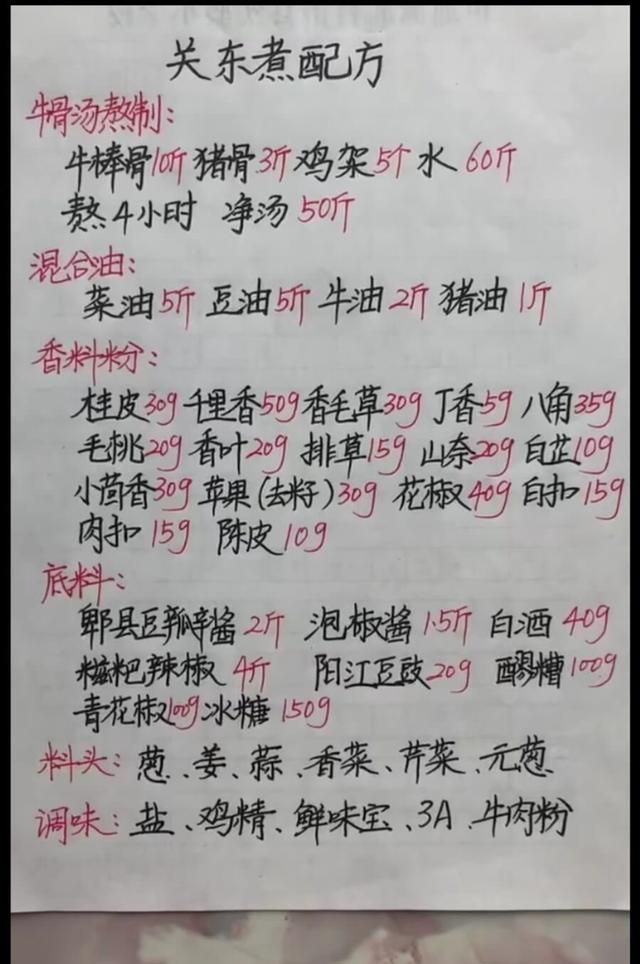 关东煮配方
牛骨汤熬制:
牛棒骨10斤 猪骨3斤 鸡架5个 水60斤
熬4小时 净汤50斤
混合油:
菜油5斤 豆油5斤 牛油2斤 猪油1斤
香料粉:
桂皮30g 千里香50g 香毛草30g 丁香5g 八角35g
毛桃20g 香叶20g 排草15g 山奈20g 白芷10g
小茴香30g 苹果(去籽)30g 花椒40g 白扣15g
肉扣15g 陈皮10g
底料:
郫县豆瓣酱2斤 泡椒酱1.5斤 白酒40g
糍粑辣椒4斤 阳江豆豉20g 醪糟100g
青花椒100g 冰糖150g
料头:葱、姜、蒜、香菜、芹菜、元葱
调味:盐、鸡精、鲜味宝、3A、牛肉粉